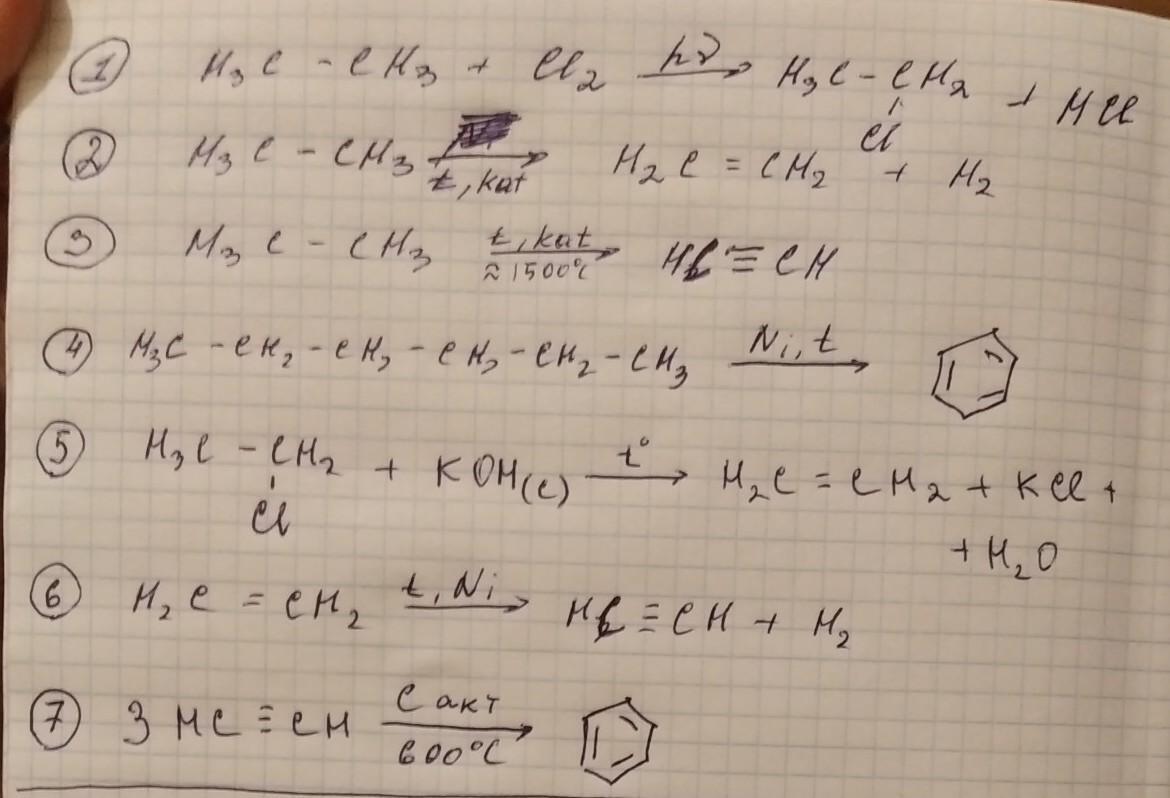 ① H₃C - CH₃ + Cl₂ hν→ H₃C - CH₂ + HCl
Cl
② H₃C - CH₃ t, kat→ H₂C = CH₂ + H₂
③ H₃C - CH₃ t, kat ≈1500°C→ HC ≡ CH
④ H₃C - CH₂ - CH₂ - CH₂ - CH₂ - CH₃ Ni, t→
⑤ H₃C - CH₂ + KOH(C) t°→ H₂C = CH₂ + KCl +
Cl
+ H₂O
⑥ H₂C = CH₂ t, Ni→ HC ≡ CH + H₂
⑦ 3 HC ≡ CH C акт 600°C→